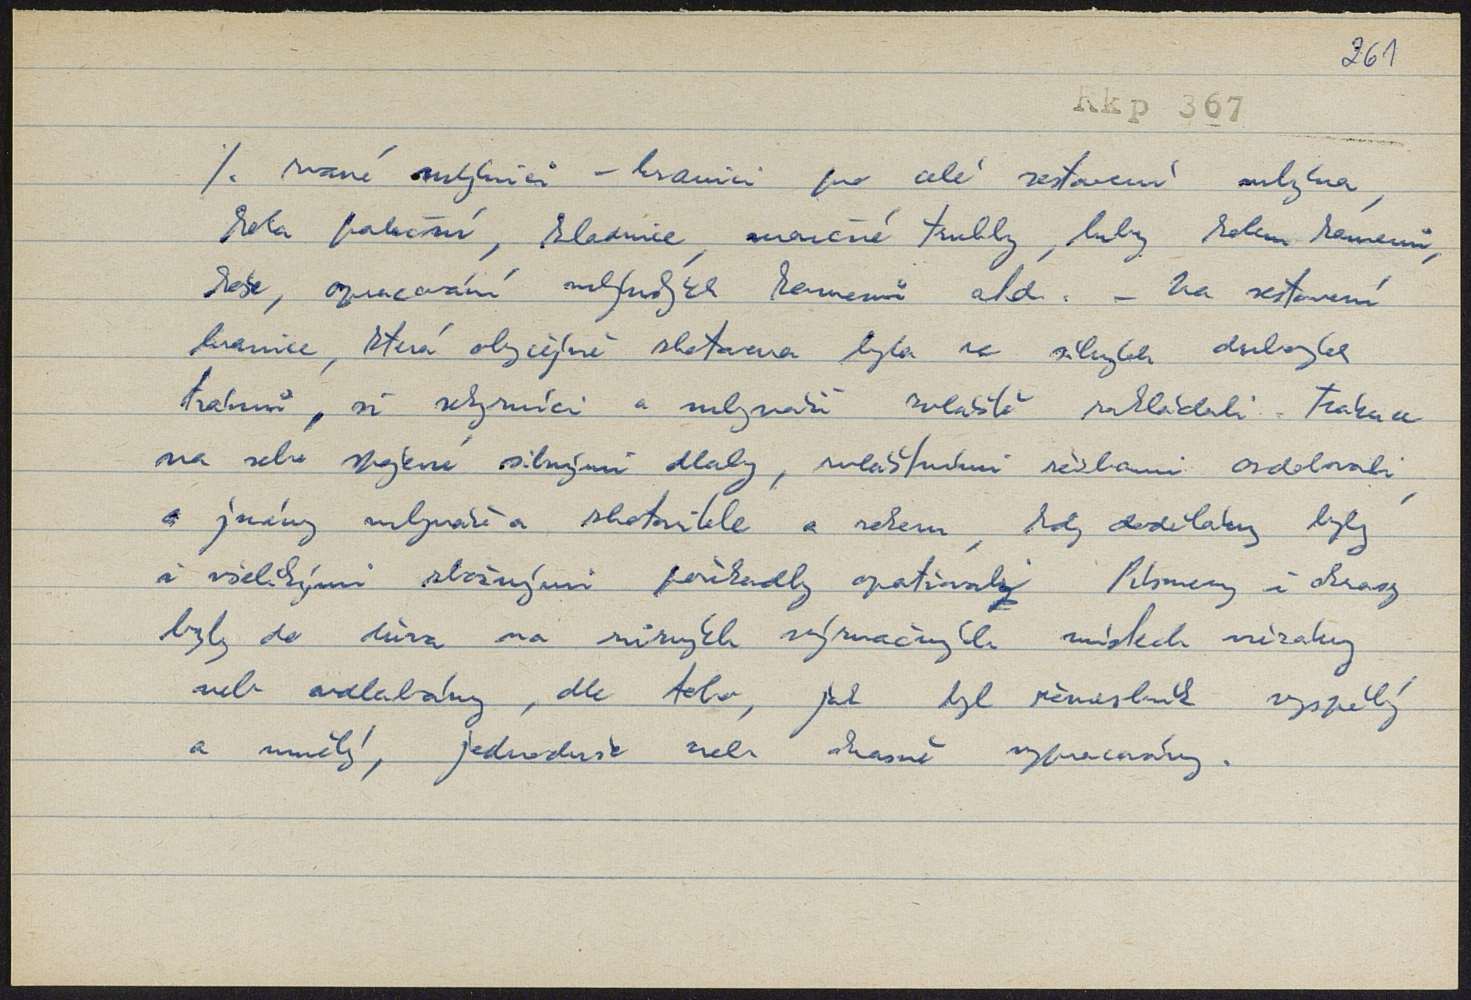 261
Rkp 367
/. zvané mlýnici – hranici pro celé sestavení mlýna,
kola paleční, kladnice, moučné truhly, luby kolem kamenů,
koše, opracování mlýnských kamenů atd. – Na sestavení
hranice, která obyčejně zhotovena byla ze silných dubových
trámů, si sekerníci a mlynáři zvláště zakládali. Trámce
na sebe spojené silnými dlaby, zvláštními řezbami ozdobovali,
a jmény mlynáře a zhotovitele a rokem, kdy dodělány byly
i všelikými zbožnými pořekadly opatřovaly Písmeny i okrasy
byly do dřeva na různých význačných místech vřezány
neb vydlabány, dle toho, jak byl řemeslník vyspělý
a umělý, jednoduše neb okrasně vypracovány.